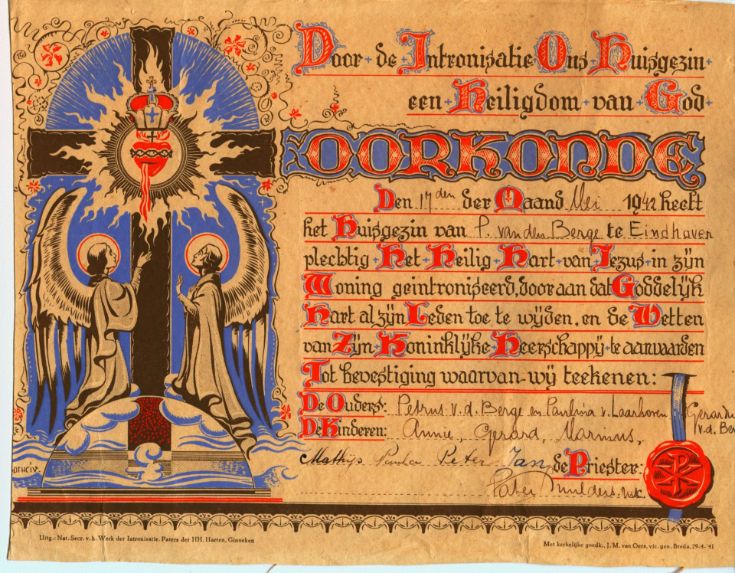 Door de Intronisatie Ons Huisgezin
een Heiligdom van God
OORKONDE
Den 17den der Maand Mei 1942 heeft
het Huisgezin van P. van den Berge te Eindhoven
plechtig Het Heilig Hart van Jezus in zijn
Woning geintroniseerd, door aan dat Goddelijk
Hart al zijn Leden toe te wijden, en de Wetten
van Zijn Koninklijke Heerschappij te aanvaarden
Tot bevestiging waarvan wij teekenen:
De Ouders: Petrus v.d. Berge en Paulina v. Laarhoven
De Kinderen: Annie, Gerard, Marinus, Gerardus v.d. Ber
Mathijs Paula Peter Jan de Priester:
Pater
Uitg.: Nat. Secr. v. h. Werk der Intronisatie. Paters der HH. Harten, Ginneken
Met kerkelijke goedk., J. M. van Oers, vic. gen. Breda, 29-4-'41